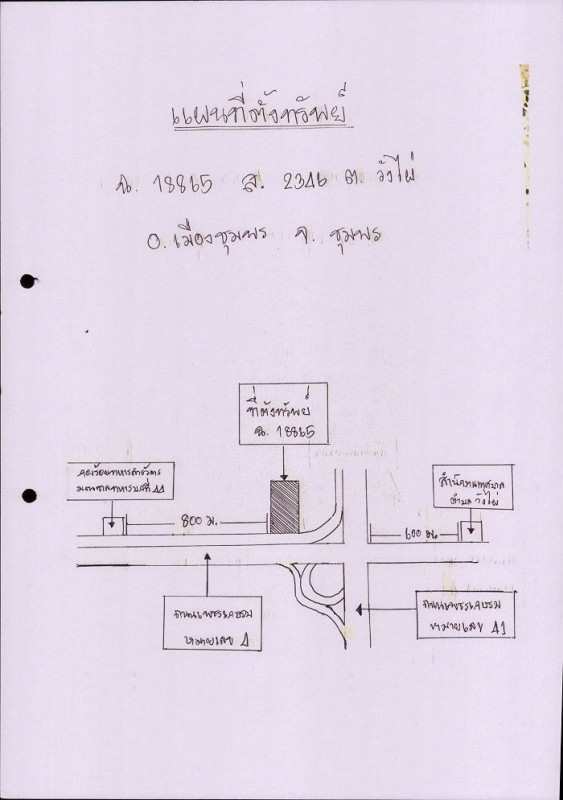 แผนที่ตั้งทรัพย์
ฉ. 18865 ส. 2346 ต. วังไผ่
อ. เมืองชุมพร จ. ชุมพร
ที่ตั้งทรัพย์
ฉ. 18865
กองร้อยทหารสารวัตร
มณฑลทหารบกที่ 44
สำนักงานเทศบาล
ตำบลวังไผ่
800 ม.
600 ม.
ถนนเพชรเกษม
หมายเลข 4
ถนนเพชรเกษม
หมายเลข 41